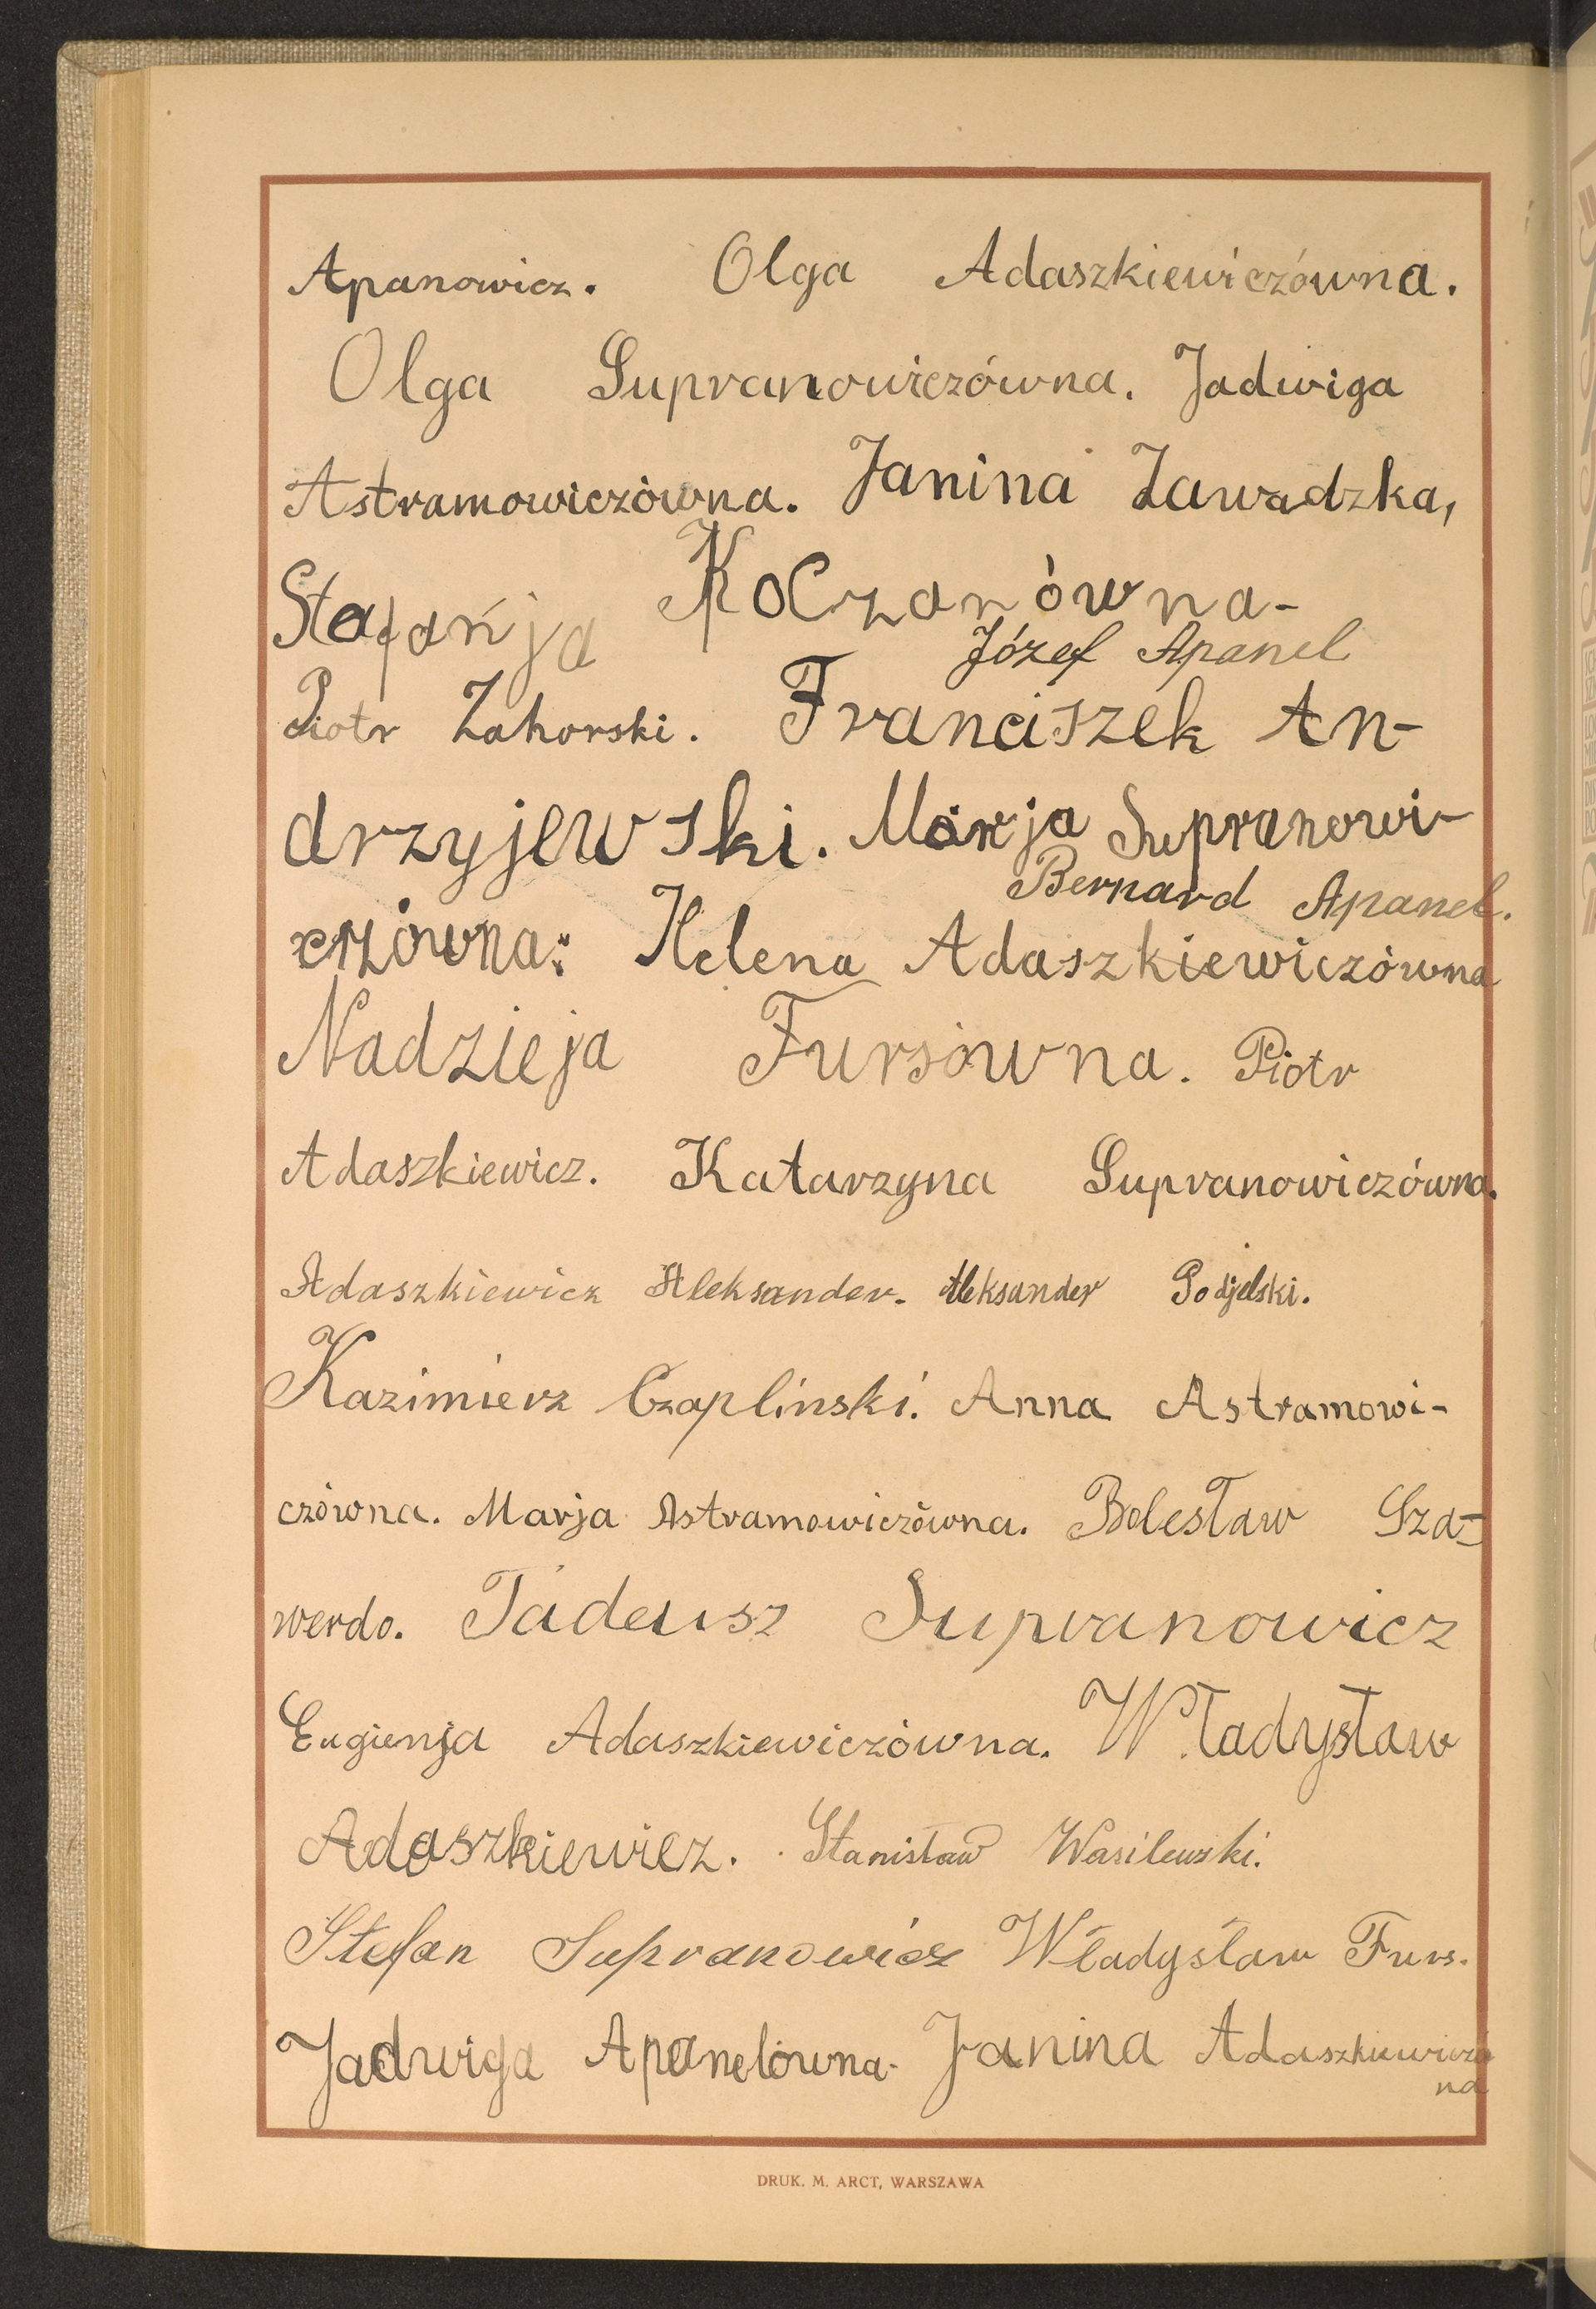 Apanowicz. Olga Adaszkiewiczówna.
Olga Supranowiczówna. Jadwiga
Astramowiczówna. Janina Zawadzka,
Stafańja Koczanówna-
Józef Apanel
Piotr Zahorski. Franciszek An-
drzyjewski. Marja Supranowi-
Bernard Apanel.
czówna. Helena Adaszkiewiczówna
Nadzieja Fursówna. Piotr
Adaszkiewicz. Katarzyna Supranowiczówna.
Adaszkiewicz Aleksander. Aleksander Podjelski.
Kazimierz Czaplinski. Anna Astramowi-
czówna. Marja Astramowiczówna. Bolesław Sza-
werdo. Tadeusz Supranowicz
Eugienja Adaszkiewiczówna. Władysław
Adaszkiewicz. Stanisław Wasilewski.
Stefan Supranowicz Władysław Furs.
Jadwiga Apanelówna- Janina Adaszkiewiczó
na
DRUK. M. ARCT, WARSZAWA